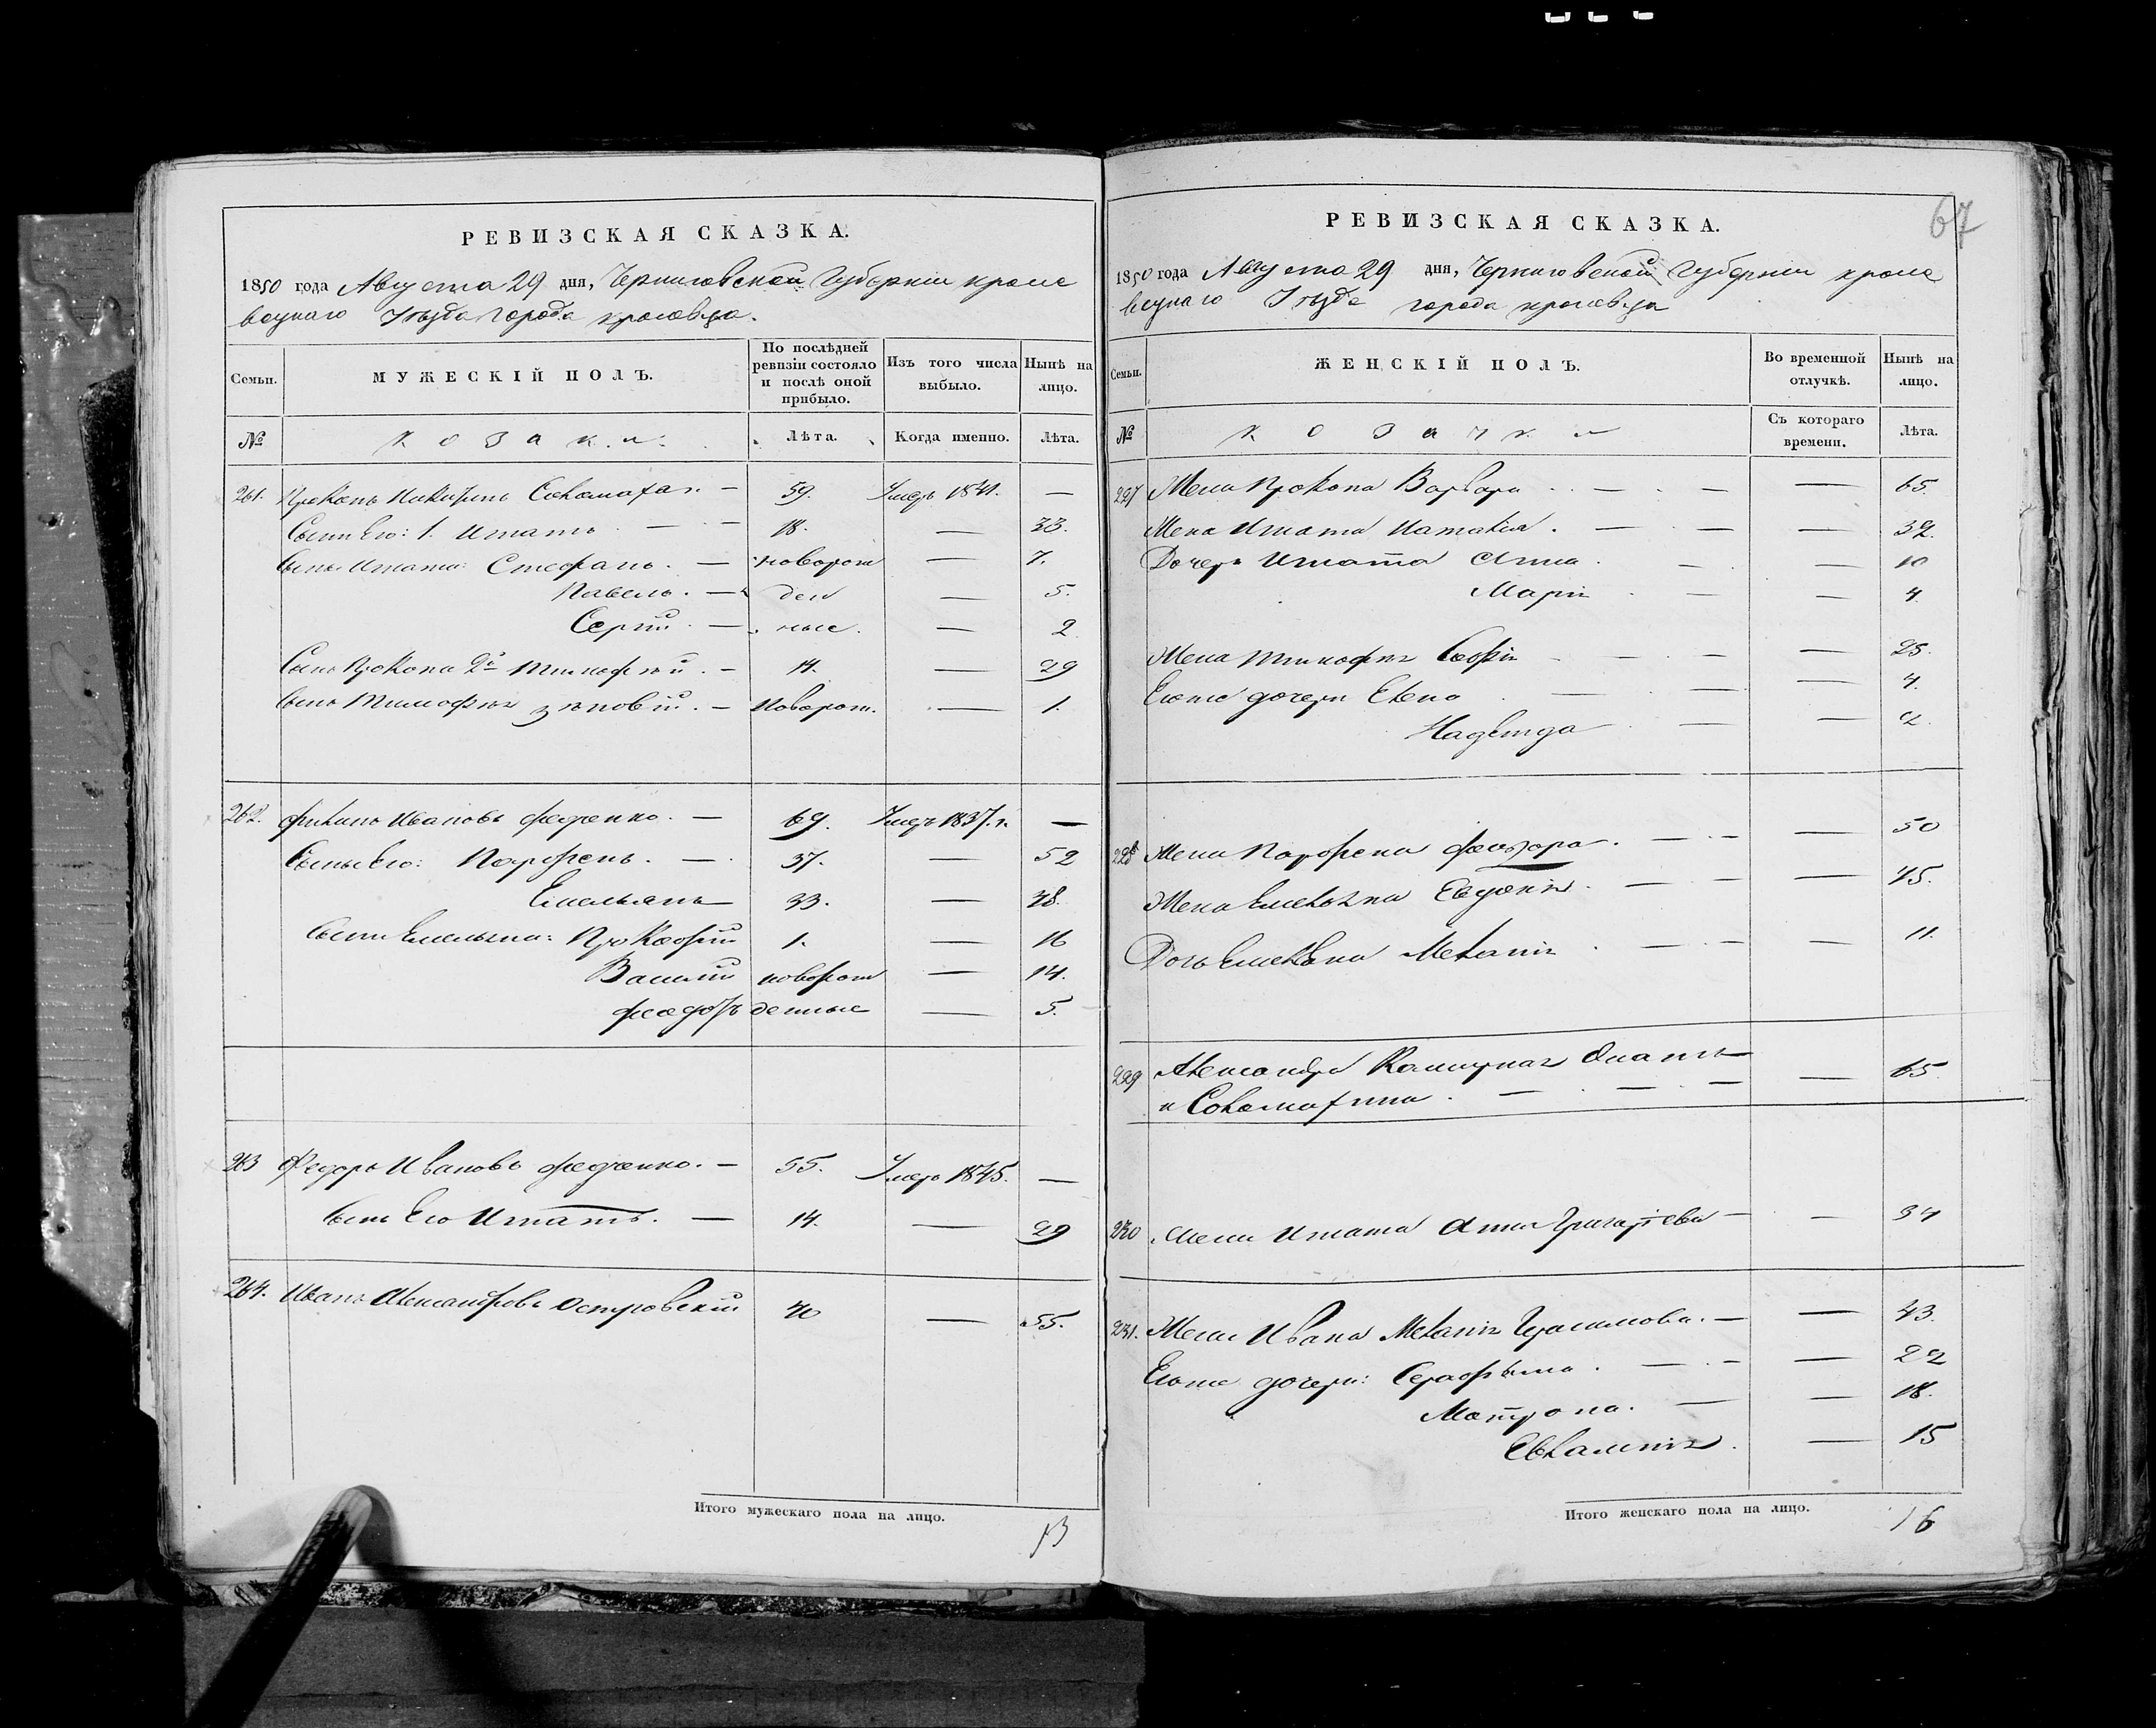 РЕВИЗСКАЯ СКАЗКА.
1850 года Августа 29 дня, Черниговской Губернiи кроле
вецкаго Уѣзда города кролевца.
Семьи. МУЖЕСКIЙ ПОЛЪ. По послѣдней ревизiи состояло и послѣ оной прибыло. Изъ того числа выбыло. Нынѣ на лицо.
№ козаки. Лѣта. Когда именно. Лѣта.
261. Прокопъ Никифоровъ 59. Умеръ 1841. —
Сынъ Его: 1. Игнатъ 18. — 33.
Сыны Игната: Стефанъ. — новорож — 7.
Павелъ. — ден — 5.
Сергiй — ные. — 2
Сынъ Прокопа 2й Тимофѣй. — 14. — 29
Сынъ Тимофѣя зѣновiй. — Новорож. — 1.
262. Ивановъ федченко. — 69. Умеръ 1837. г. —
Сыны Его: Парфенъ. — 37. — 52
Емельянъ 33. — 48.
Сыны Емельяна: Прокофiй 1. — 16
Василiй новорож — 14.
феодоръ денные — 5.
263 Федоръ Ивановъ федченко. — 55. Умеръ 1845. —
Сынъ Его Игнатъ. — 14. — 29
264. Иванъ Александровъ Островскiй 40 — 55.
Итого мужескаго пола на лицо. 13
67
РЕВИЗСКАЯ СКАЗКА.
1850 года Августа 29 дня, Черниговской Губернiи кроле
вецкаго Уѣзда города кролевца
Семьи. ЖЕНСКIЙ ПОЛЪ. Во временной отлучкѣ. Нынѣ на лицо.
№ козачки Съ котораго времени. Лѣта.
227 Жена Прокопа Варвара — — 65.
Жена Игната Наталiя. — — 32.
Дочери Игната Анна — — 10
Марiя — — 4.
Жена Тимофѣя Софiя — — 25.
Егоже дочери Елена — — 4.
Надежда — — 2.
228 Жена Парфена феодора. — — 50
Жена Емельяна Евдокiя. — — 45.
Дочь Емельяна Меланiя — — 11.
229 Александра
— — 65
230 Жена Игната Анна Григорiева — — 34
231. Жена Ивана Меланiя Герасимова. — — 43.
Егоже дочери: Серафыма. — — 22
Матрона. — — 18.
Евлампiя. — 15
Итого женскаго пола на лицо. 16